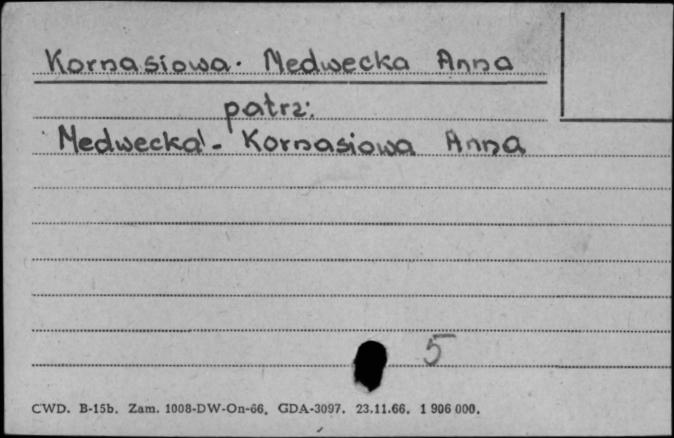 Kornasiowa. Medwecka Anna
patrz:
Medwecka - Kornasiowa Anna
5
CWD. B-15b. Zam. 1008-DW-On-66. GDA-3097. 23.11.66. 1 906 000.